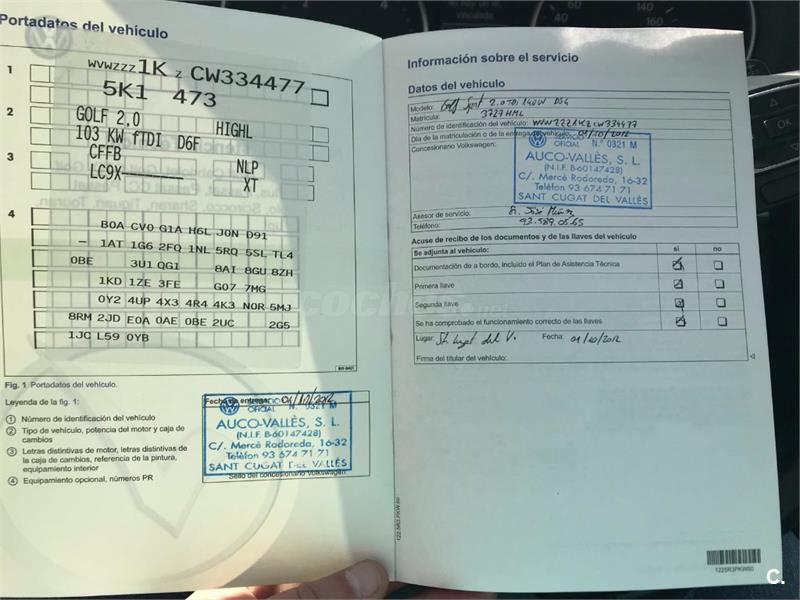 Portadatos del vehículo
1
WVWZZZ1K Z CW334477
5K1 473
2
GOLF 2,0 HIGHL
103 KW fTDI D6F
3
CFFB NLP
LC9X--------- XT
4
B0A CV0 G1A H6L J0N D91
- 1AT 1G6 2FQ 1NL 5RQ 5SL TL4
0BE 3U1 QG1 8AI 8GU 8ZH
1KD 1ZE 3FE G07 7MG
0Y2 4UP 4X3 4R4 4K3 N0R 5MJ
8RM 2JD E0A 0AE 0BE 2UC 2G5
1JC L59 0YB
Fig. 1 Portadatos del vehículo.
Leyenda de la fig. 1:
1 Número de identificación del vehículo
2 Tipo de vehículo, potencia del motor y caja de
cambios
3 Letras distintivas de motor, letras distintivas de
la caja de cambios, referencia de la pintura,
equipamiento interior
4 Equipamiento opcional, números PR
Fecha de entrega: 01/10/2012
SERVICIO
OFICIAL N.º 0321 M
AUCO-VALLÈS, S. L.
(N.I.F. B-60147428)
C/. Mercè Rodoreda, 16-32
Teléfon 93 674 71 71
SANT CUGAT DEL VALLÈS
Sello del concesionario Volkswagen
Información sobre el servicio
Datos del vehículo
Modelo: Golf Sport 2.0TDI 140CV DSG
Matrícula: 3727HML
Número de identificación del vehículo: WVWZZZ1KZCW334477
Día de la matriculación o de la entrega del vehículo: 01/10/2012
Concesionario Volkswagen:
SERVICIO
OFICIAL N.º 0321 M
AUCO-VALLÈS, S. L.
(N.I.F. B-60147428)
C/. Mercè Rodoreda, 16-32
Teléfon 93 674 71 71
SANT CUGAT DEL VALLÈS
Asesor de servicio: José
Teléfono: 93.589.05.65
Acuse de recibo de los documentos y de las llaves del vehículo
Se adjunta al vehículo: sí no
Documentación de a bordo, incluido el Plan de Asistencia Técnica
Primera llave
Segunda llave
Se ha comprobado el funcionamiento correcto de las llaves
Lugar: St. Cugat del V. Fecha: 01/10/2012
Firma del titular del vehículo:
122.5R3.PKW.60
1225R3PKW60
coches.net
OK
60
40
140
160
vinculado
C.